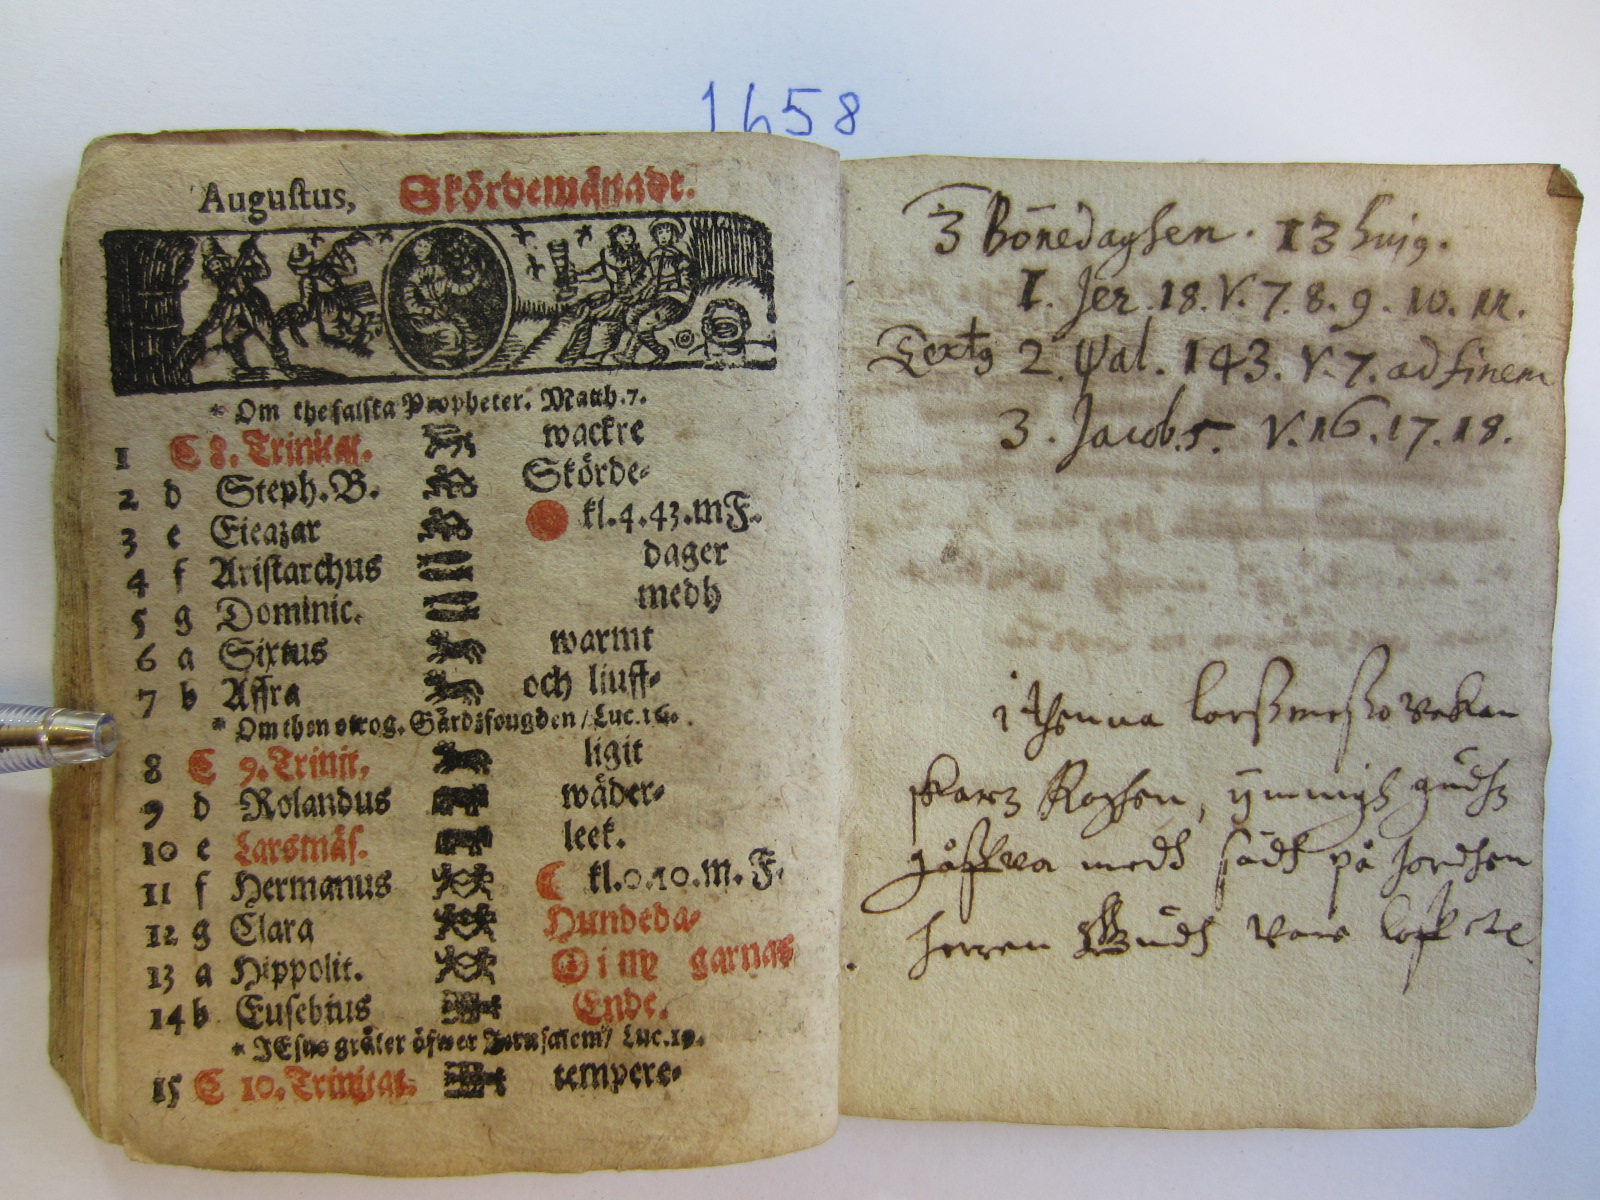 1658
Augustus, Skördemånadt.
* Om the falska Propheter. Matth. 7.
1 C 8. Trinitat. wackre
2 d Steph. B. Skörde-
3 e Eleazar kl. 4. 43. m F.
4 f Aristarchus dager
5 g Dominic. medh
6 a Sixtus warmt
7 b Affra och liuff-
* Om then otrog. Gårdzfougden / Luc. 16.
8 C 9. Trinit, ligit
9 d Rolandus wäder-
10 e Larsmäs. leek.
11 f Hermanus kl. 0. 10. m. F.
12 g Clara Hundeda-
13 a Hippolit. ☉ i ny garnas
14 b Eusebius Ende.
* JEsus gråter öfwer Jerusalem / Luc. 19.
15 C 10. Trinitat. tempere-
3 Bönedaghen. 13 huig.
1. Jer. 18. V. 7. 8. 9. 10. 11.
Text9 2. Psal. 143. V. 7. ad finem
3. Jacob. 5. V. 16. 17. 18.
i thenna larßmeßo vekan
skarz Roghen, ÿmnigh gudz
gåffwa medh sädh på Jordhen
herren Gudh vare loff etc